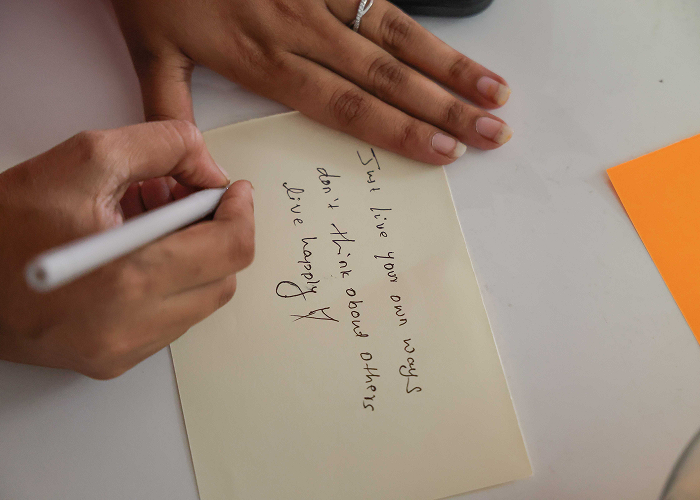 Just live your own ways
don't think about others
live happily